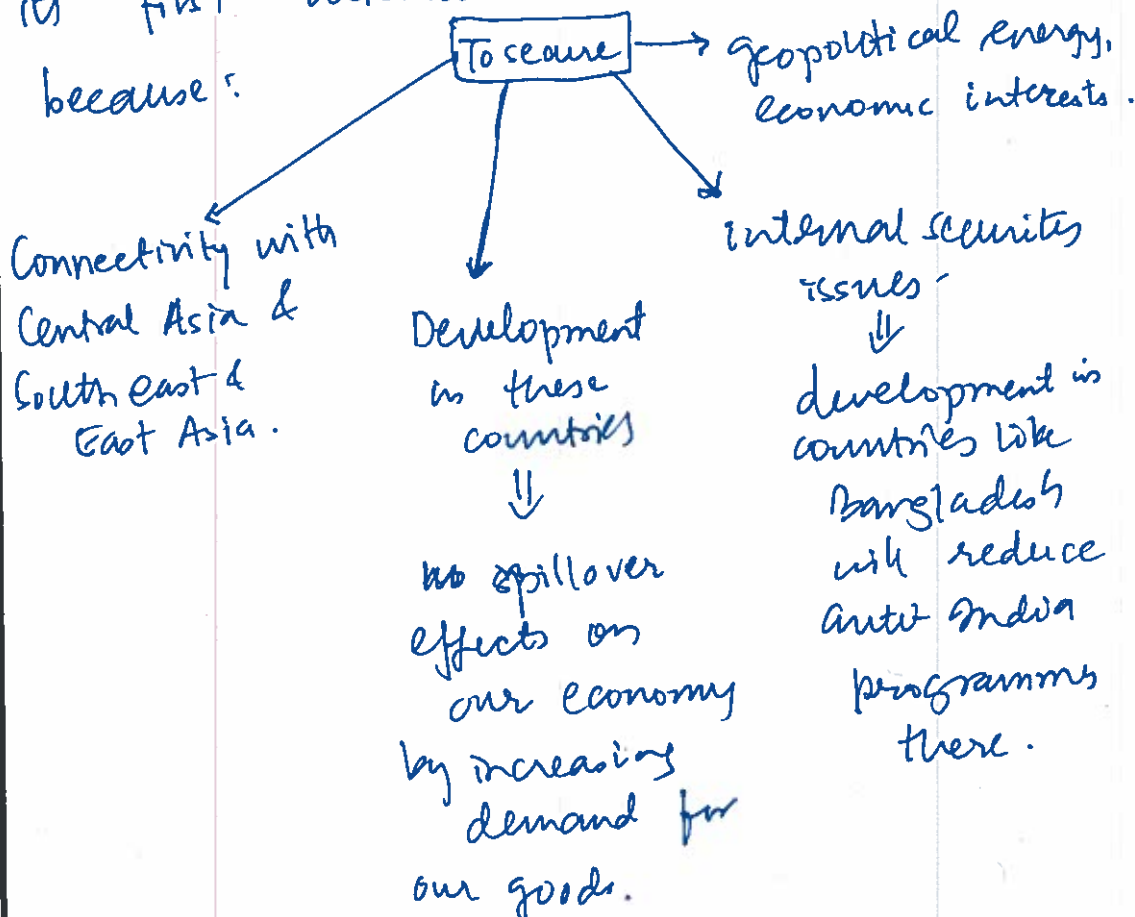 first
because :
To secure
geopolitical energy,
economic interests.
Connectivity with
Central Asia &
South east &
East Asia.
Development
in these
countries
⇓
spillover
effects on
our economy
by increasing
demand for
our goods.
internal securites
issues
⇓
development in
countries like
Bangladesh
will reduce
anti India
programms
there.